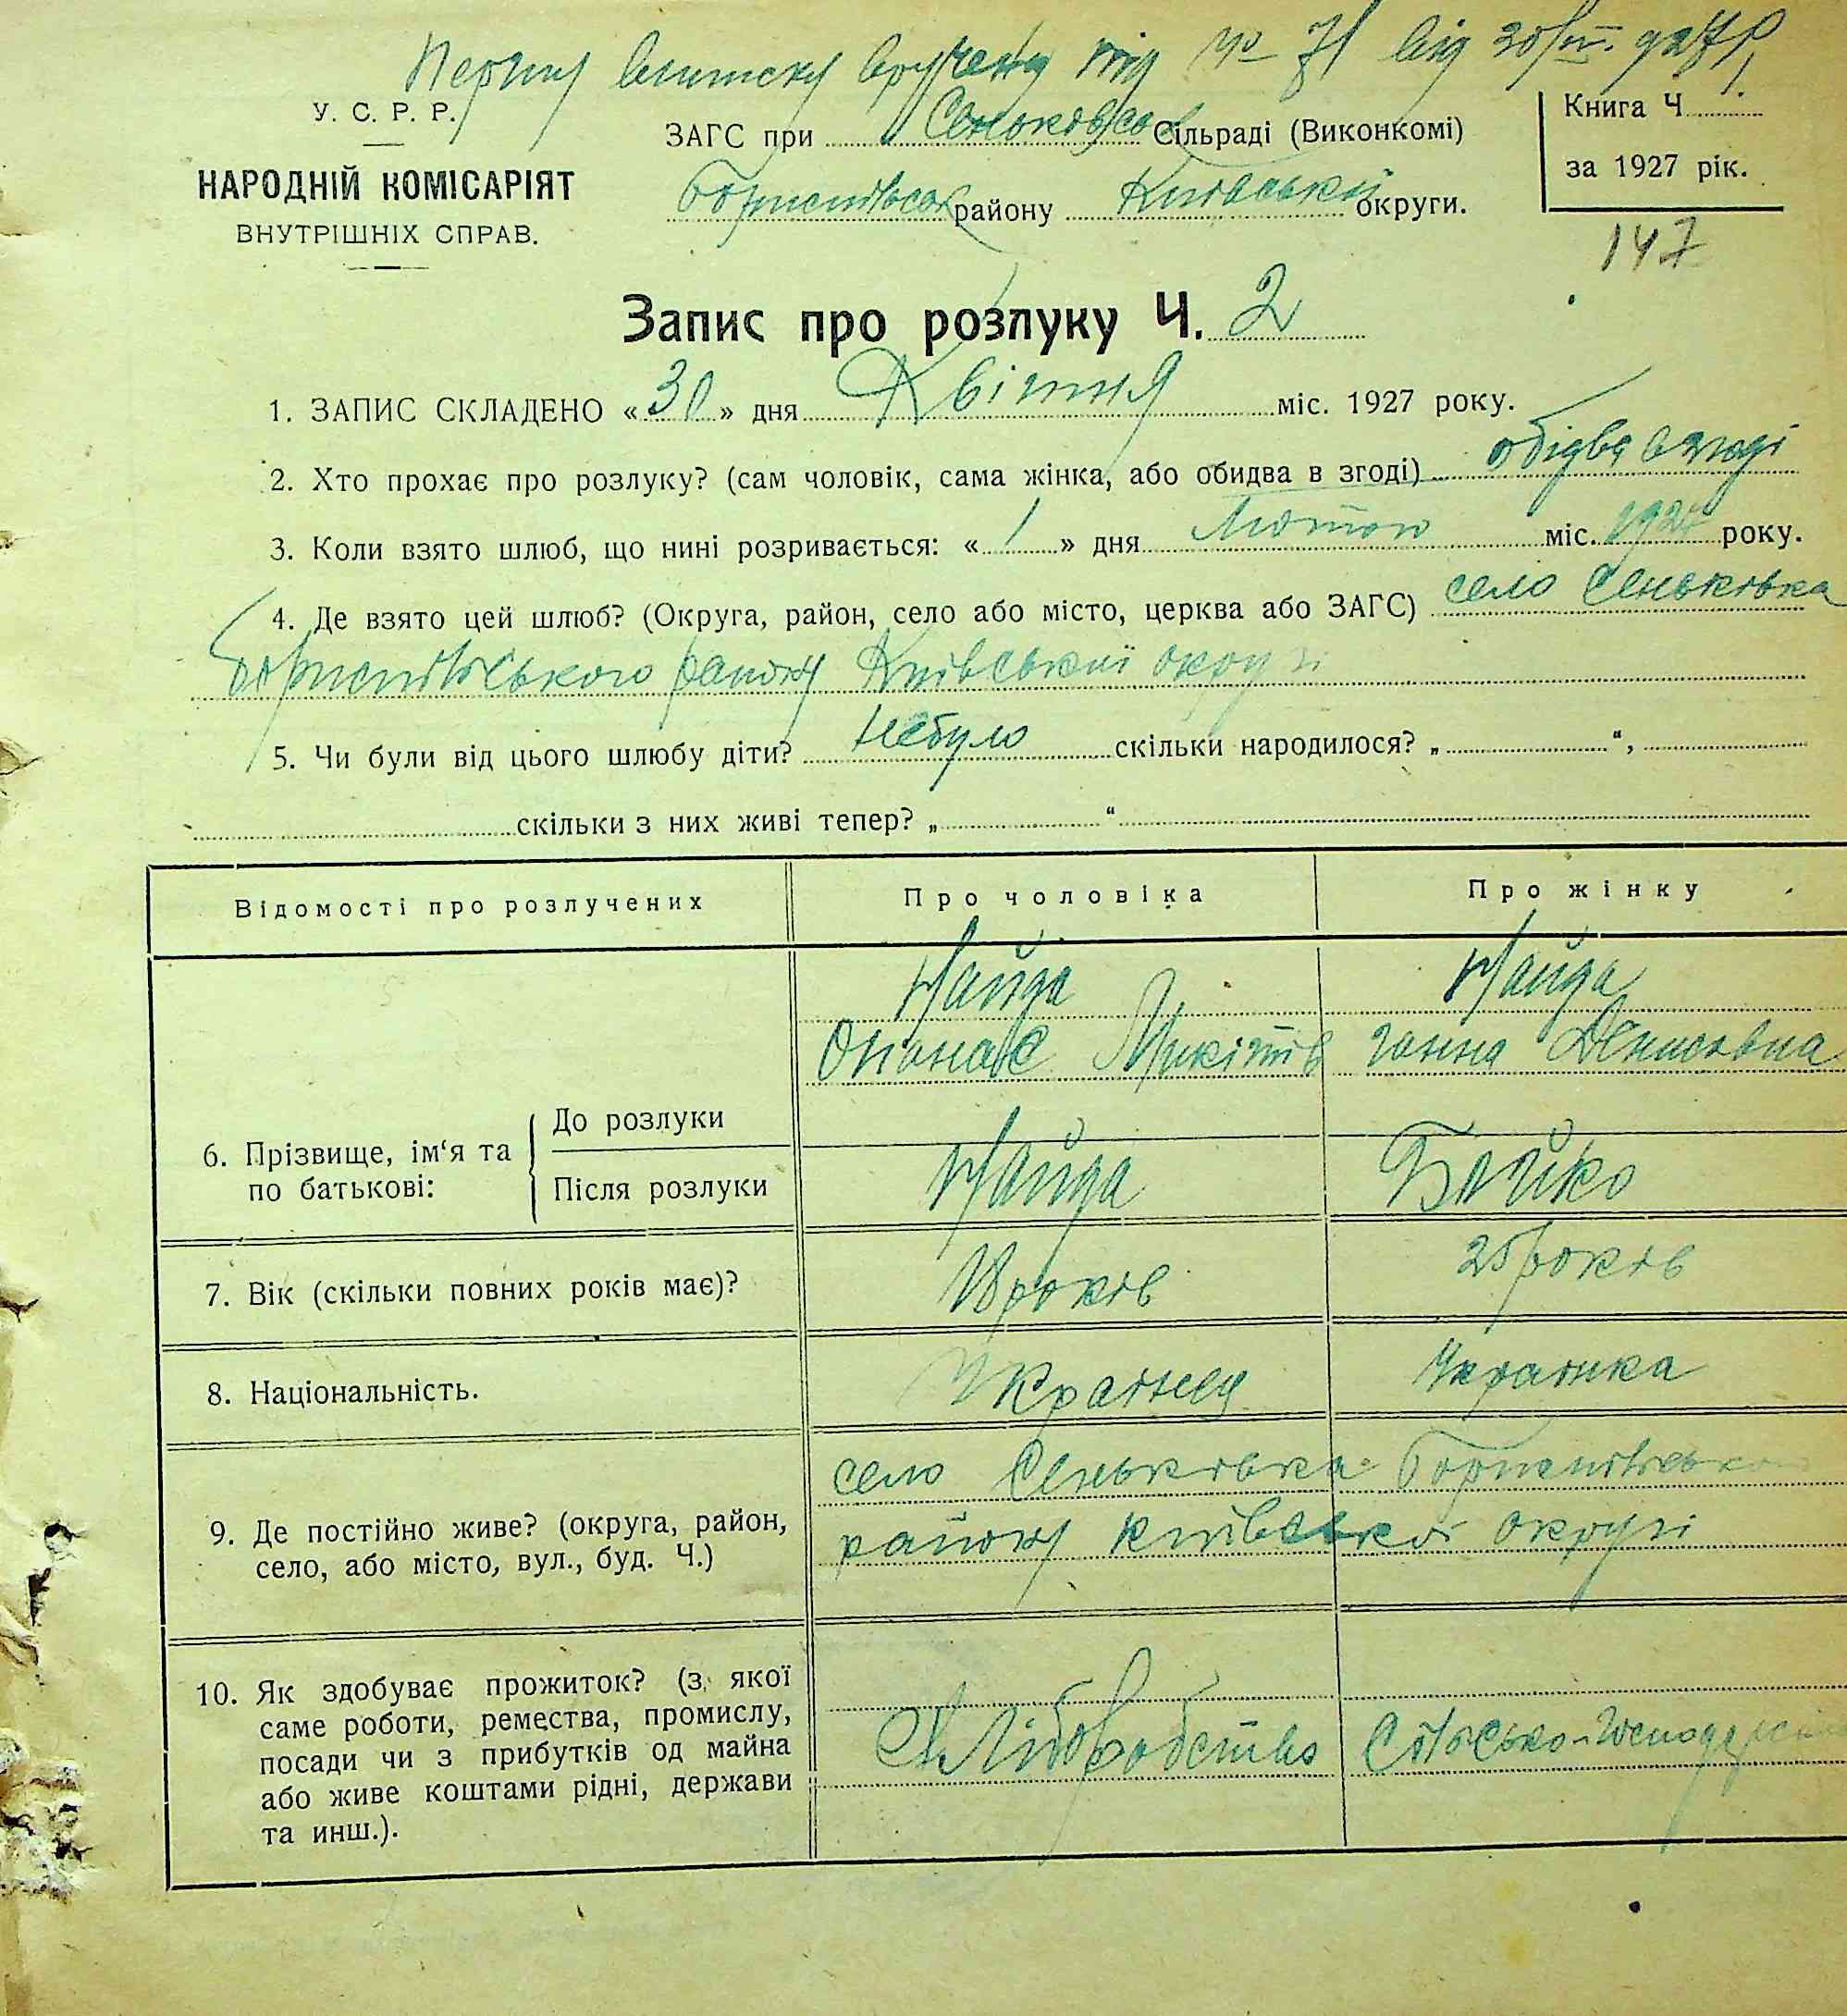 Першу виписку вручено під № 71 від 20/VII. 927 р.
У. С. Р. Р.
ЗАГС при Сеньковс Сільраді (Виконкомі)
Книга Ч.
НАРОДНІЙ КОМІСАРІЯТ
Бориспівськ району Київської округи.
за 1927 рік.
ВНУТРІШНІХ СПРАВ.
147
Запис про розлуку Ч. 2
1. ЗАПИС СКЛАДЕНО «30» дня Квітня міс. 1927 року.
2. Хто прохає про розлуку? (сам чоловік, сама жінка, або обидва в згоді) обідва в згоді
3. Коли взято шлюб, що нині розривається: «1» дня Лютого міс. року.
4. Де взято цей шлюб? (Округа, район, село або місто, церква або ЗАГС) село Сеньківка
Бориспівського району Київської округі
5. Чи були від цього шлюбу діти? небуло скільки народилося? „ “,
скільки з них живі тепер? „ “
Відомості про розлучених
Про чоловіка
Про жінку
Найда
Найда
Опонас Микітів
Ганна Денисовна
6. Прізвище, ім‘я та по батькові:
До розлуки
Після розлуки
Найда
Бойко
7. Вік (скільки повних років має)?
18 років
25 років
8. Національність.
Українец
Українка
9. Де постійно живе? (округа, район,
село, або місто, вул., буд. Ч.)
село Сеньківка Бориспівського
району Київської округі
10. Як здобуває прожиток? (з якої
саме роботи, ремества, промислу,
посади чи з прибутків од майна
або живе коштами рідні, держави
та инш.).
Хліборобство
Сільсько-